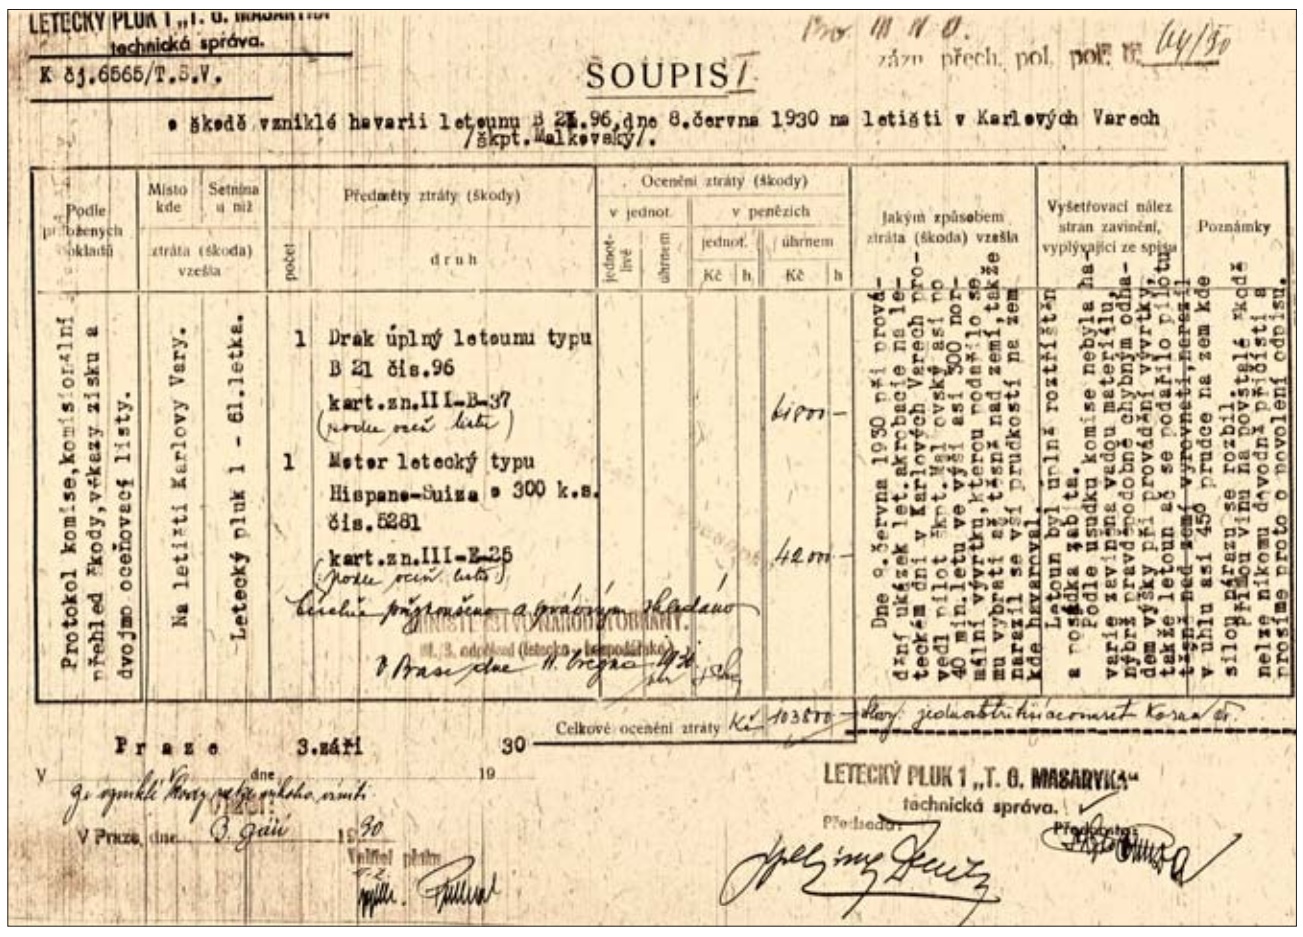 LETECKÝ PLUK 1 „T. G. MASARYKA
technická správa.
K čj.6565/T.S.V.
Pro M N O.
zázn přech. pol. pol. č. 64/30
SOUPIS I.
o škodě vzniklé havarii letounu B 21.96,dne 8.června 1930 na letišti v Karlových Varech
/škpt.Malkovský/.
Podle
přiložených
dokladů
Místo
kde
Setnina
u níž
ztráta (škoda)
vzešla
Předměty ztráty (škody)
počet
druh
Ocenění ztráty (škody)
v jednot.
v penězích
jednot-
livě
úhrnem
jednot.
úhrnem
Kč h
Kč h
Jakým způsobem
ztráta (škoda) vzešla
Vyšetřovací nález
stran zavinění,
vyplývající ze spisu
Poznámky
Protokol komise,komisionální
přehled škody,výkazy zisku a
dvojmo oceňovací listy.
Na letišti Karlovy Vary.
Letecký pluk 1 - 61.letka.
1 Drak úplný letounu typu
B 21 čís.96
kart.zn.III-B-37
(podle oceň listu)
61800-
1 Motor letecký typu
Hispano-Suiza o 300 k.s.
čís.5281
kart.zn.III-E-25
(podle oceň listu)
42000-
MINISTERSTVO NÁRODNÍ OBRANY.
V Praze dne 1930
Dne 8.června 1930 při prová-
dění ukázek let.akrobacie na le-
teckém dni v Karlových Varech pro-
vedl pilot škpt.Malkovský asi po
40 min.letu ve výši asi 300 nor-
mální vývrtku,kterou podařilo se
mu vybrati až těsně nad zemí,takže
narazil se vší prudkostí na zem
kde havaroval.
Letoun byl úplně roztříštěn
a posádka zabita.
Podle úsudku komise nebyla ha-
varie zaviněna vadou materiálu,
nýbrž pravděpodobně chybným odha-
dem výšky při provádění vývrtky,
takže letoun ač se podařilo pilotu
těsně nad zemí vyrovnati,narazil
v úhlu asi 45° prudce na zem kde
silou nárazu se rozbil.
Přímou vinu na povstalé škodě
nelze nikomu důvodně přičísti a
prosíme proto o povolení odpisu.
Celkové ocenění ztráty Kč 103800-
V Praze dne 3.září 1930
V Praze, dne 3. září 1930
Velitel pluku
LETECKÝ PLUK 1 „T. G. MASARYKA“
technická správa.
Předseda:
Přednosta: